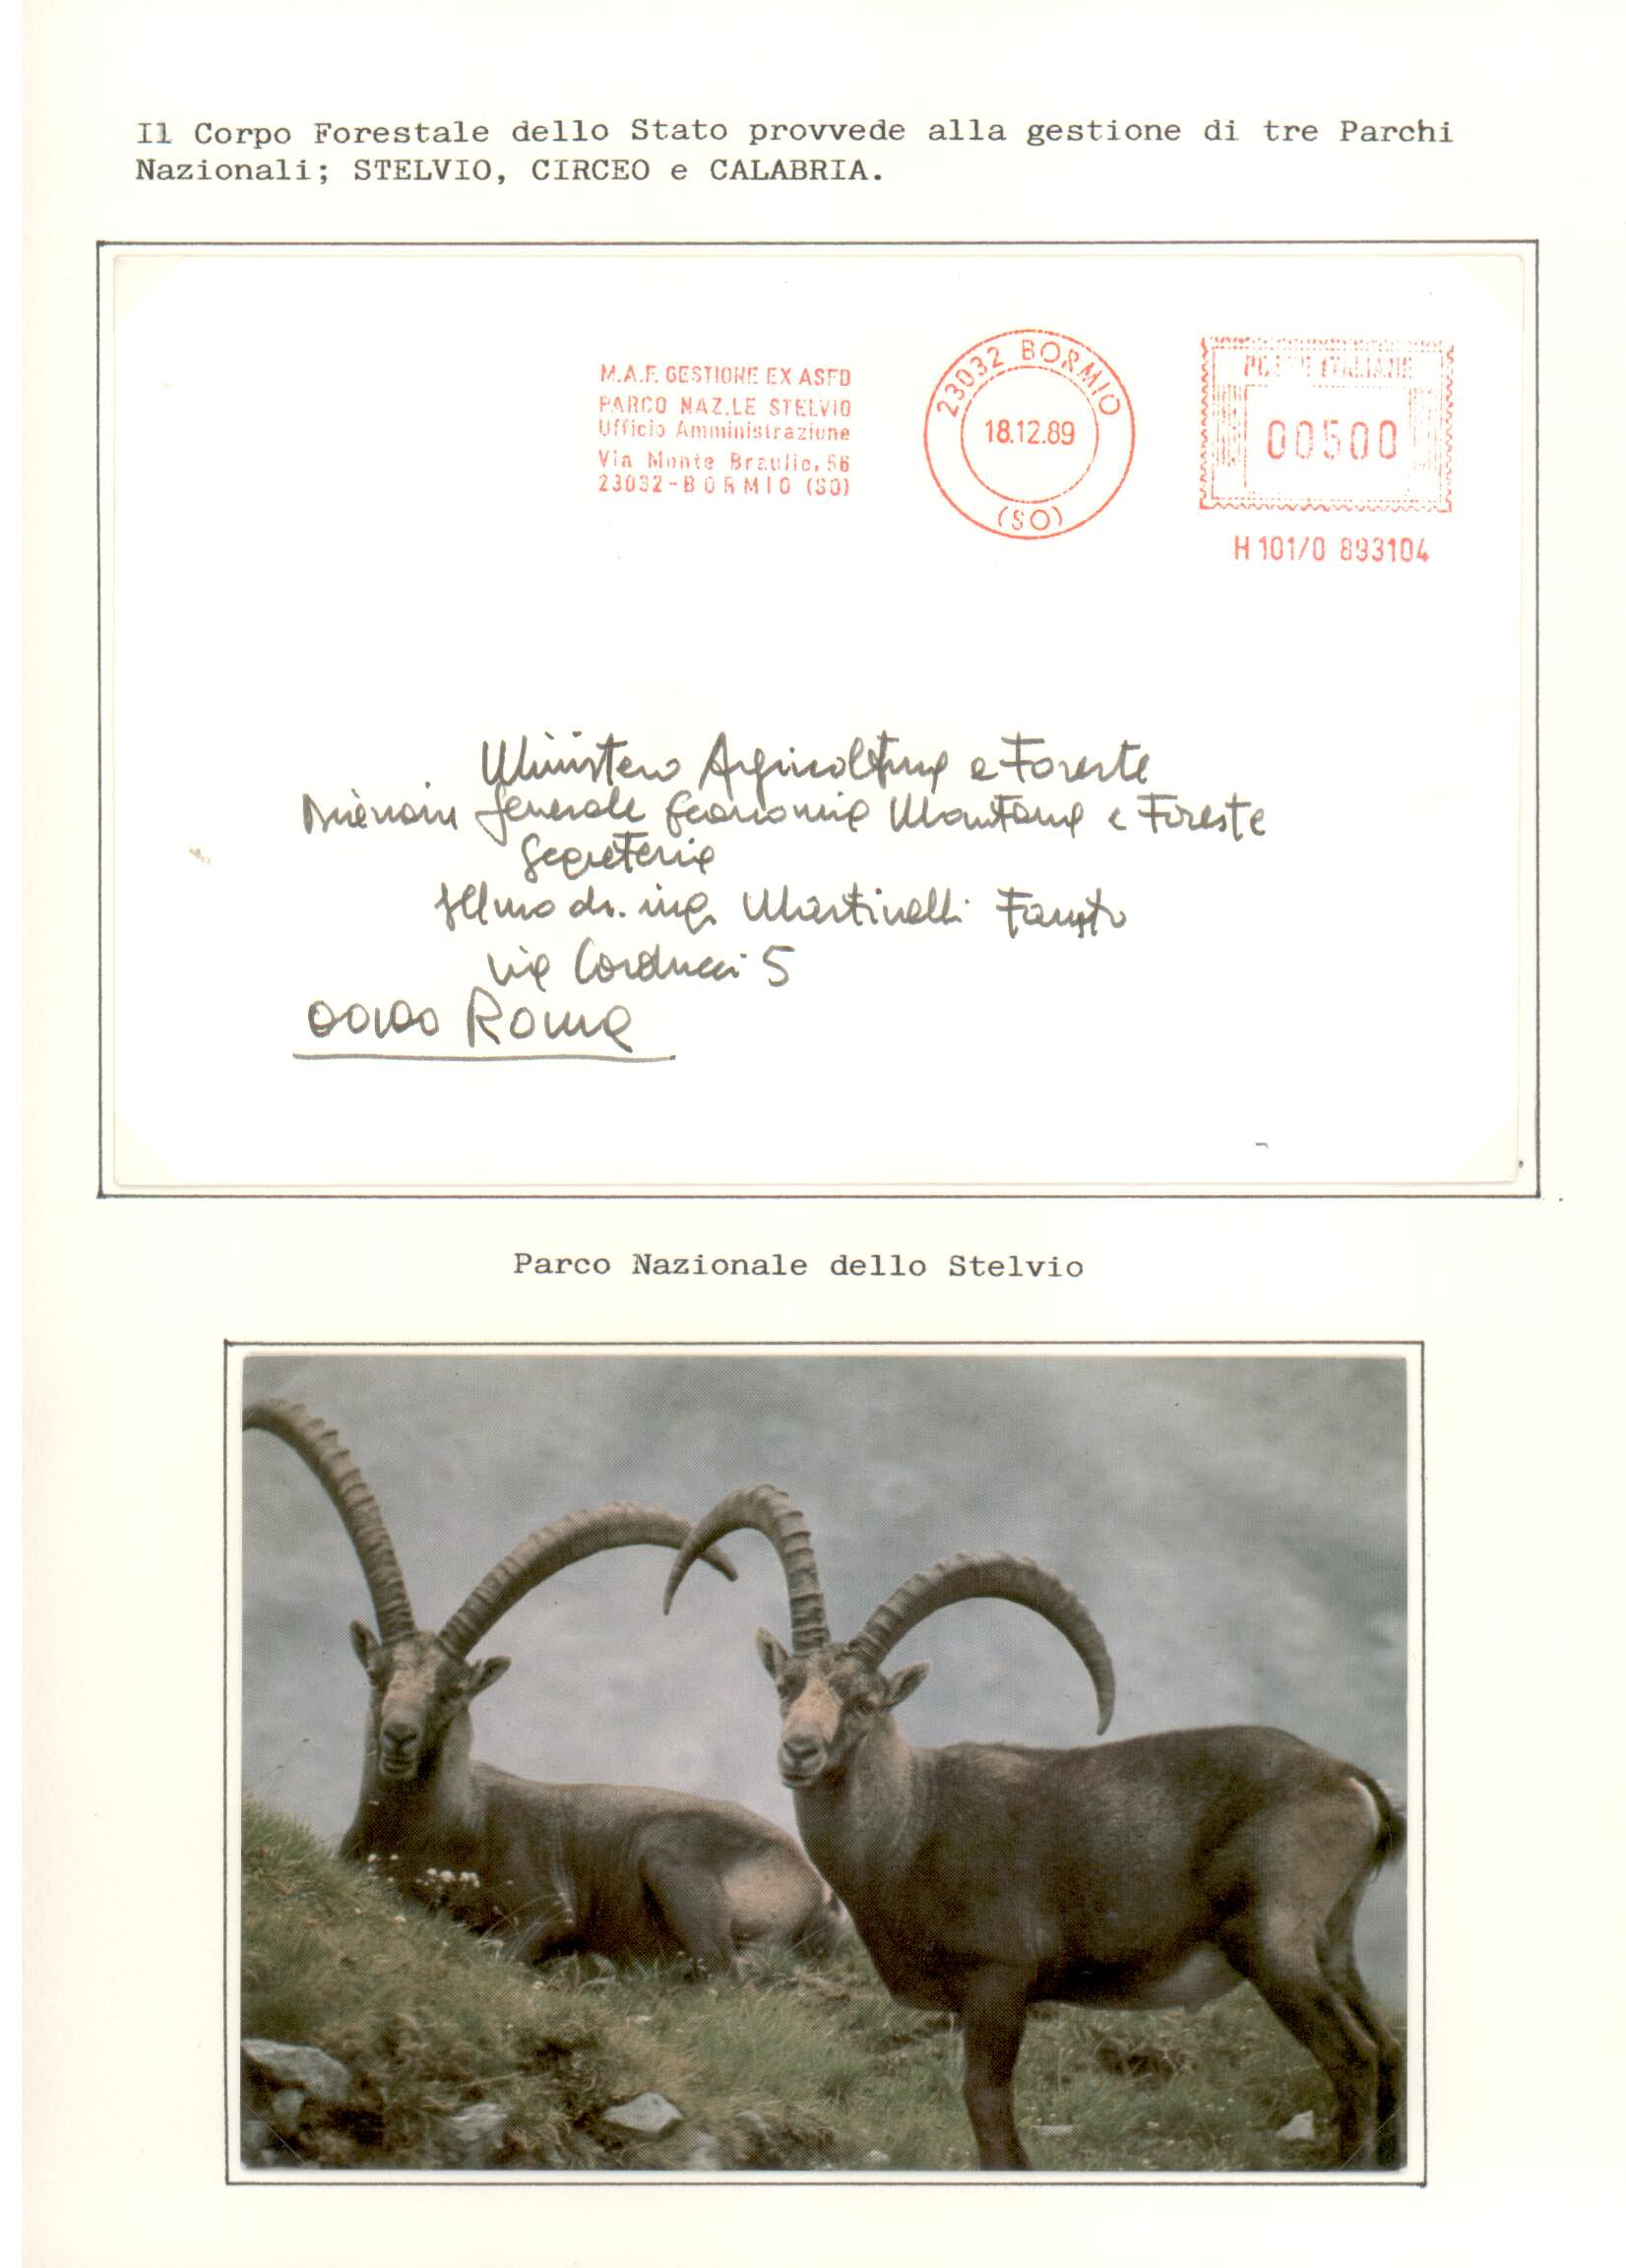 Il Corpo Forestale dello Stato provvede alla gestione di tre Parchi
Nazionali; STELVIO, CIRCEO e CALABRIA.
M.A.F. GESTIONE EX ASFD
PARCO NAZ.LE STELVIO
Ufficio Amministrazione
Via Monte Braulio, 56
23032-BORMIO (SO)
23032 BORMIO
18.12.89
(SO)
POSTE ITALIANE
00500
H 101/0 893104
Ministero Agricoltura e Foreste
Direzione Generale Economia Montana e Foreste
Segreteria
Ill.mo dr. ing. Martinelli Fausto
via Carducci 5
00100 Roma
Parco Nazionale dello Stelvio